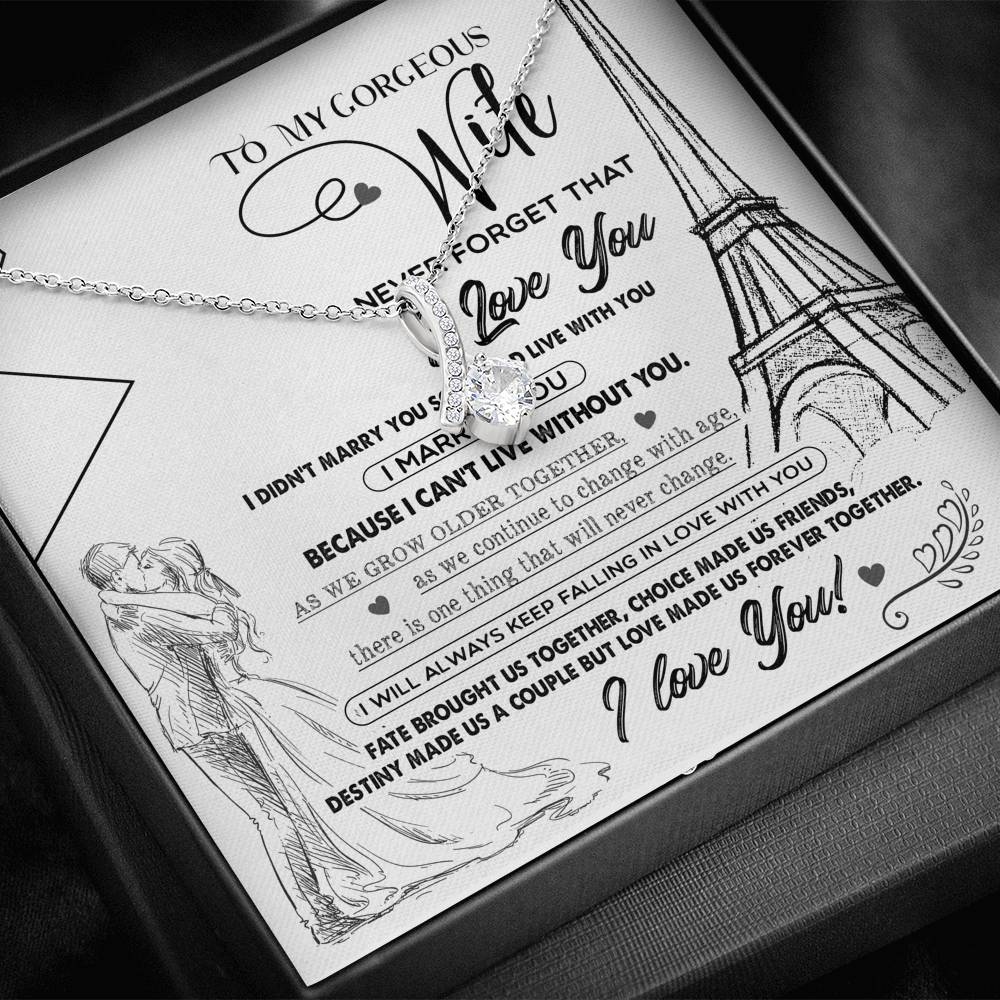 To My Gorgeous
Wife
NEVER FORGET THAT
Love You
I DIDN'T MARRY YOU S D LIVE WITH YOU
I MARR OU
BECAUSE I CAN'T LIVE WITHOUT YOU.
AS WE GROW OLDER TOGETHER,
as we continue to change with age,
there is one thing that will never change.
I WILL ALWAYS KEEP FALLING IN LOVE WITH YOU
FATE BROUGHT US TOGETHER, CHOICE MADE US FRIENDS,
DESTINY MADE US A COUPLE BUT LOVE MADE US FOREVER TOGETHER.
I love You!